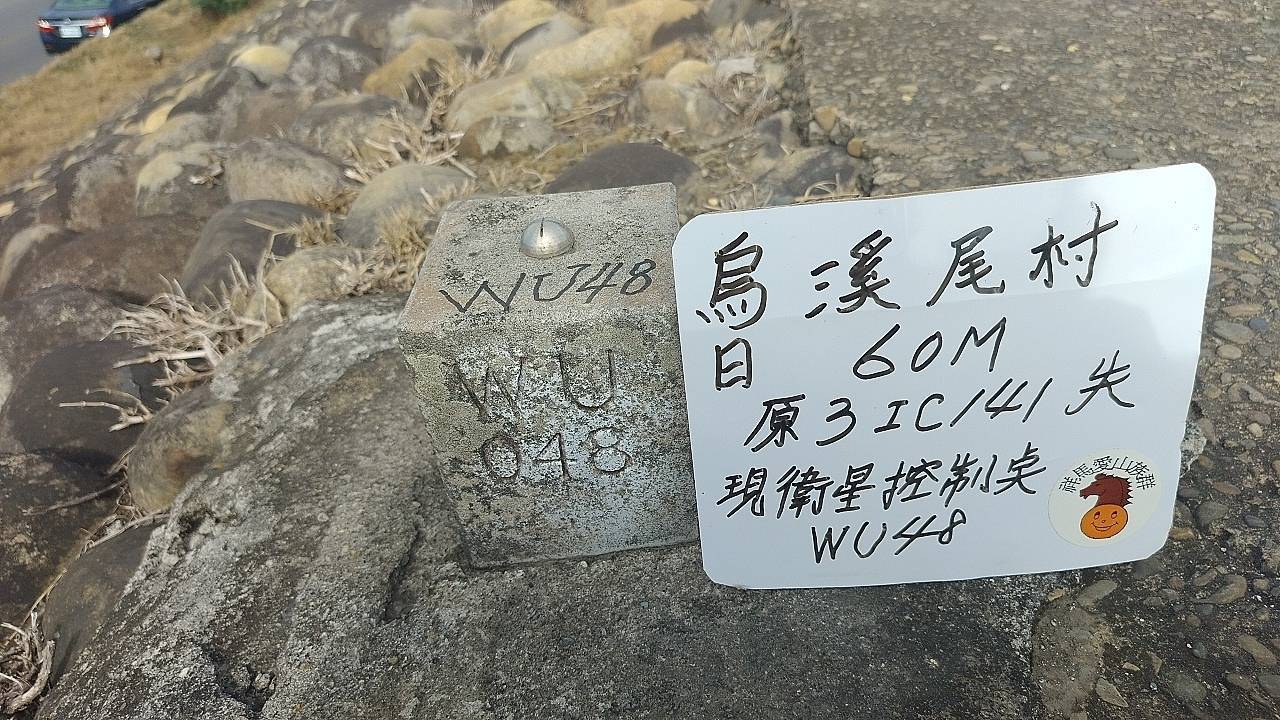 WU48
WU
048
烏溪尾村
日 60M
原3IC141失
現衛星控制点
WU48
祥馬愛山族群